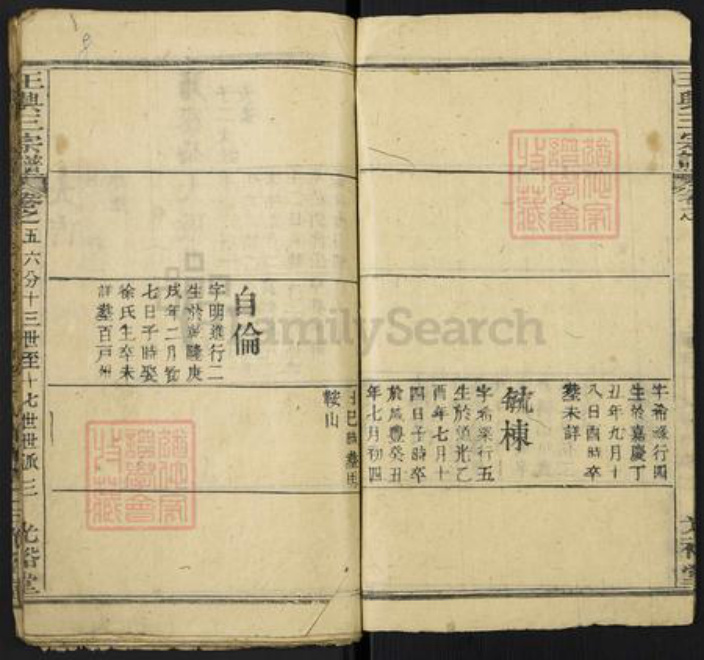 字希
行四
生於嘉慶丁
丑年九月十
八日酉時卒
墓未詳
毓棟
字希梁行五
生於道光乙
酉年七月十
四日子時卒
於咸豐癸丑
年七月初四
巳時墓
鞍山
自倫
字明進行二
生於乾隆庚
戌年二月初
七日子時娶
徐氏生卒未
詳墓百戸州
王與三宗譜
卷之五六分十三世至十七世世派三
光裕堂
王與三宗譜
FamilySearch